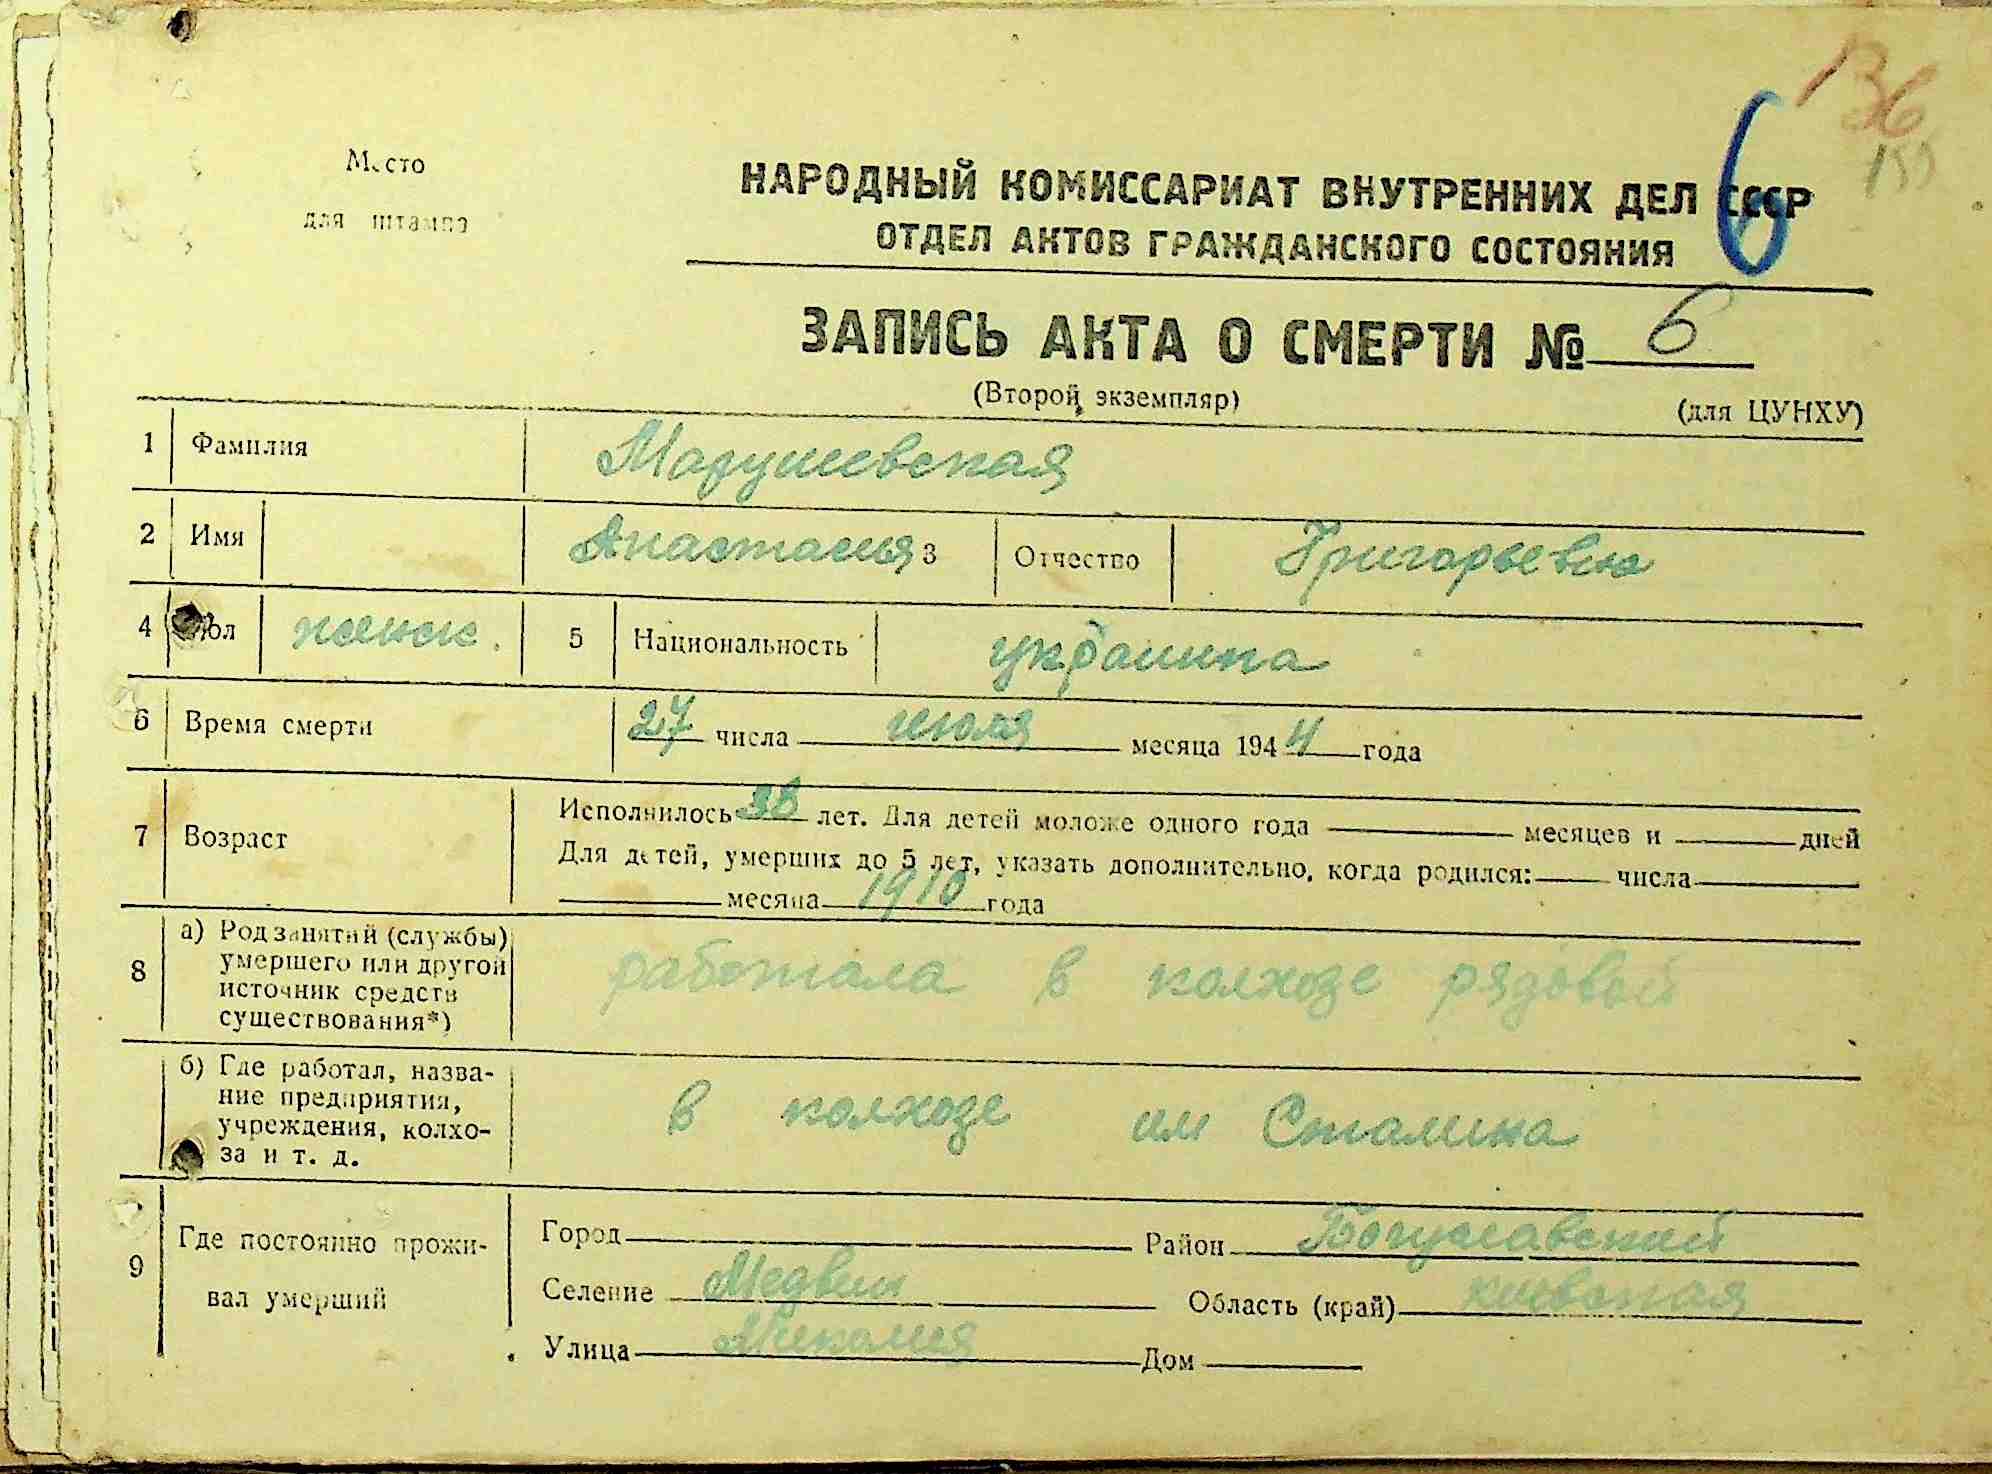 136
6
Место
для штампа
НАРОДНЫЙ КОМИССАРИАТ ВНУТРЕННИХ ДЕЛ СССР
ОТДЕЛ АКТОВ ГРАЖДАНСКОГО СОСТОЯНИЯ
ЗАПИСЬ АКТА О СМЕРТИ № 6
(Второй экземпляр) (для ЦУНХУ)
1 Фамилия Марушевская
2 Имя Анастасия 3 Отчество Григорьевна
4 Пол женск. 5 Национальность украинка
6 Время смерти 27 числа июля месяца 1944 года
7 Возраст Исполнилось 38 лет. Для детей моложе одного года месяцев и дней
Для детей, умерших до 5 лет, указать дополнительно, когда родился: числа
месяца 1910 года
8 а) Род занятий (службы) умершего или другой источник средств существования*) работала в колхозе рядовой
б) Где работал, название предприятия, учреждения, колхоза и т. д. в колхозе им Сталина
9 Где постоянно проживал умерший Город Район Богуславский
Селение Медвин Область (край) киевская
Улица Дом